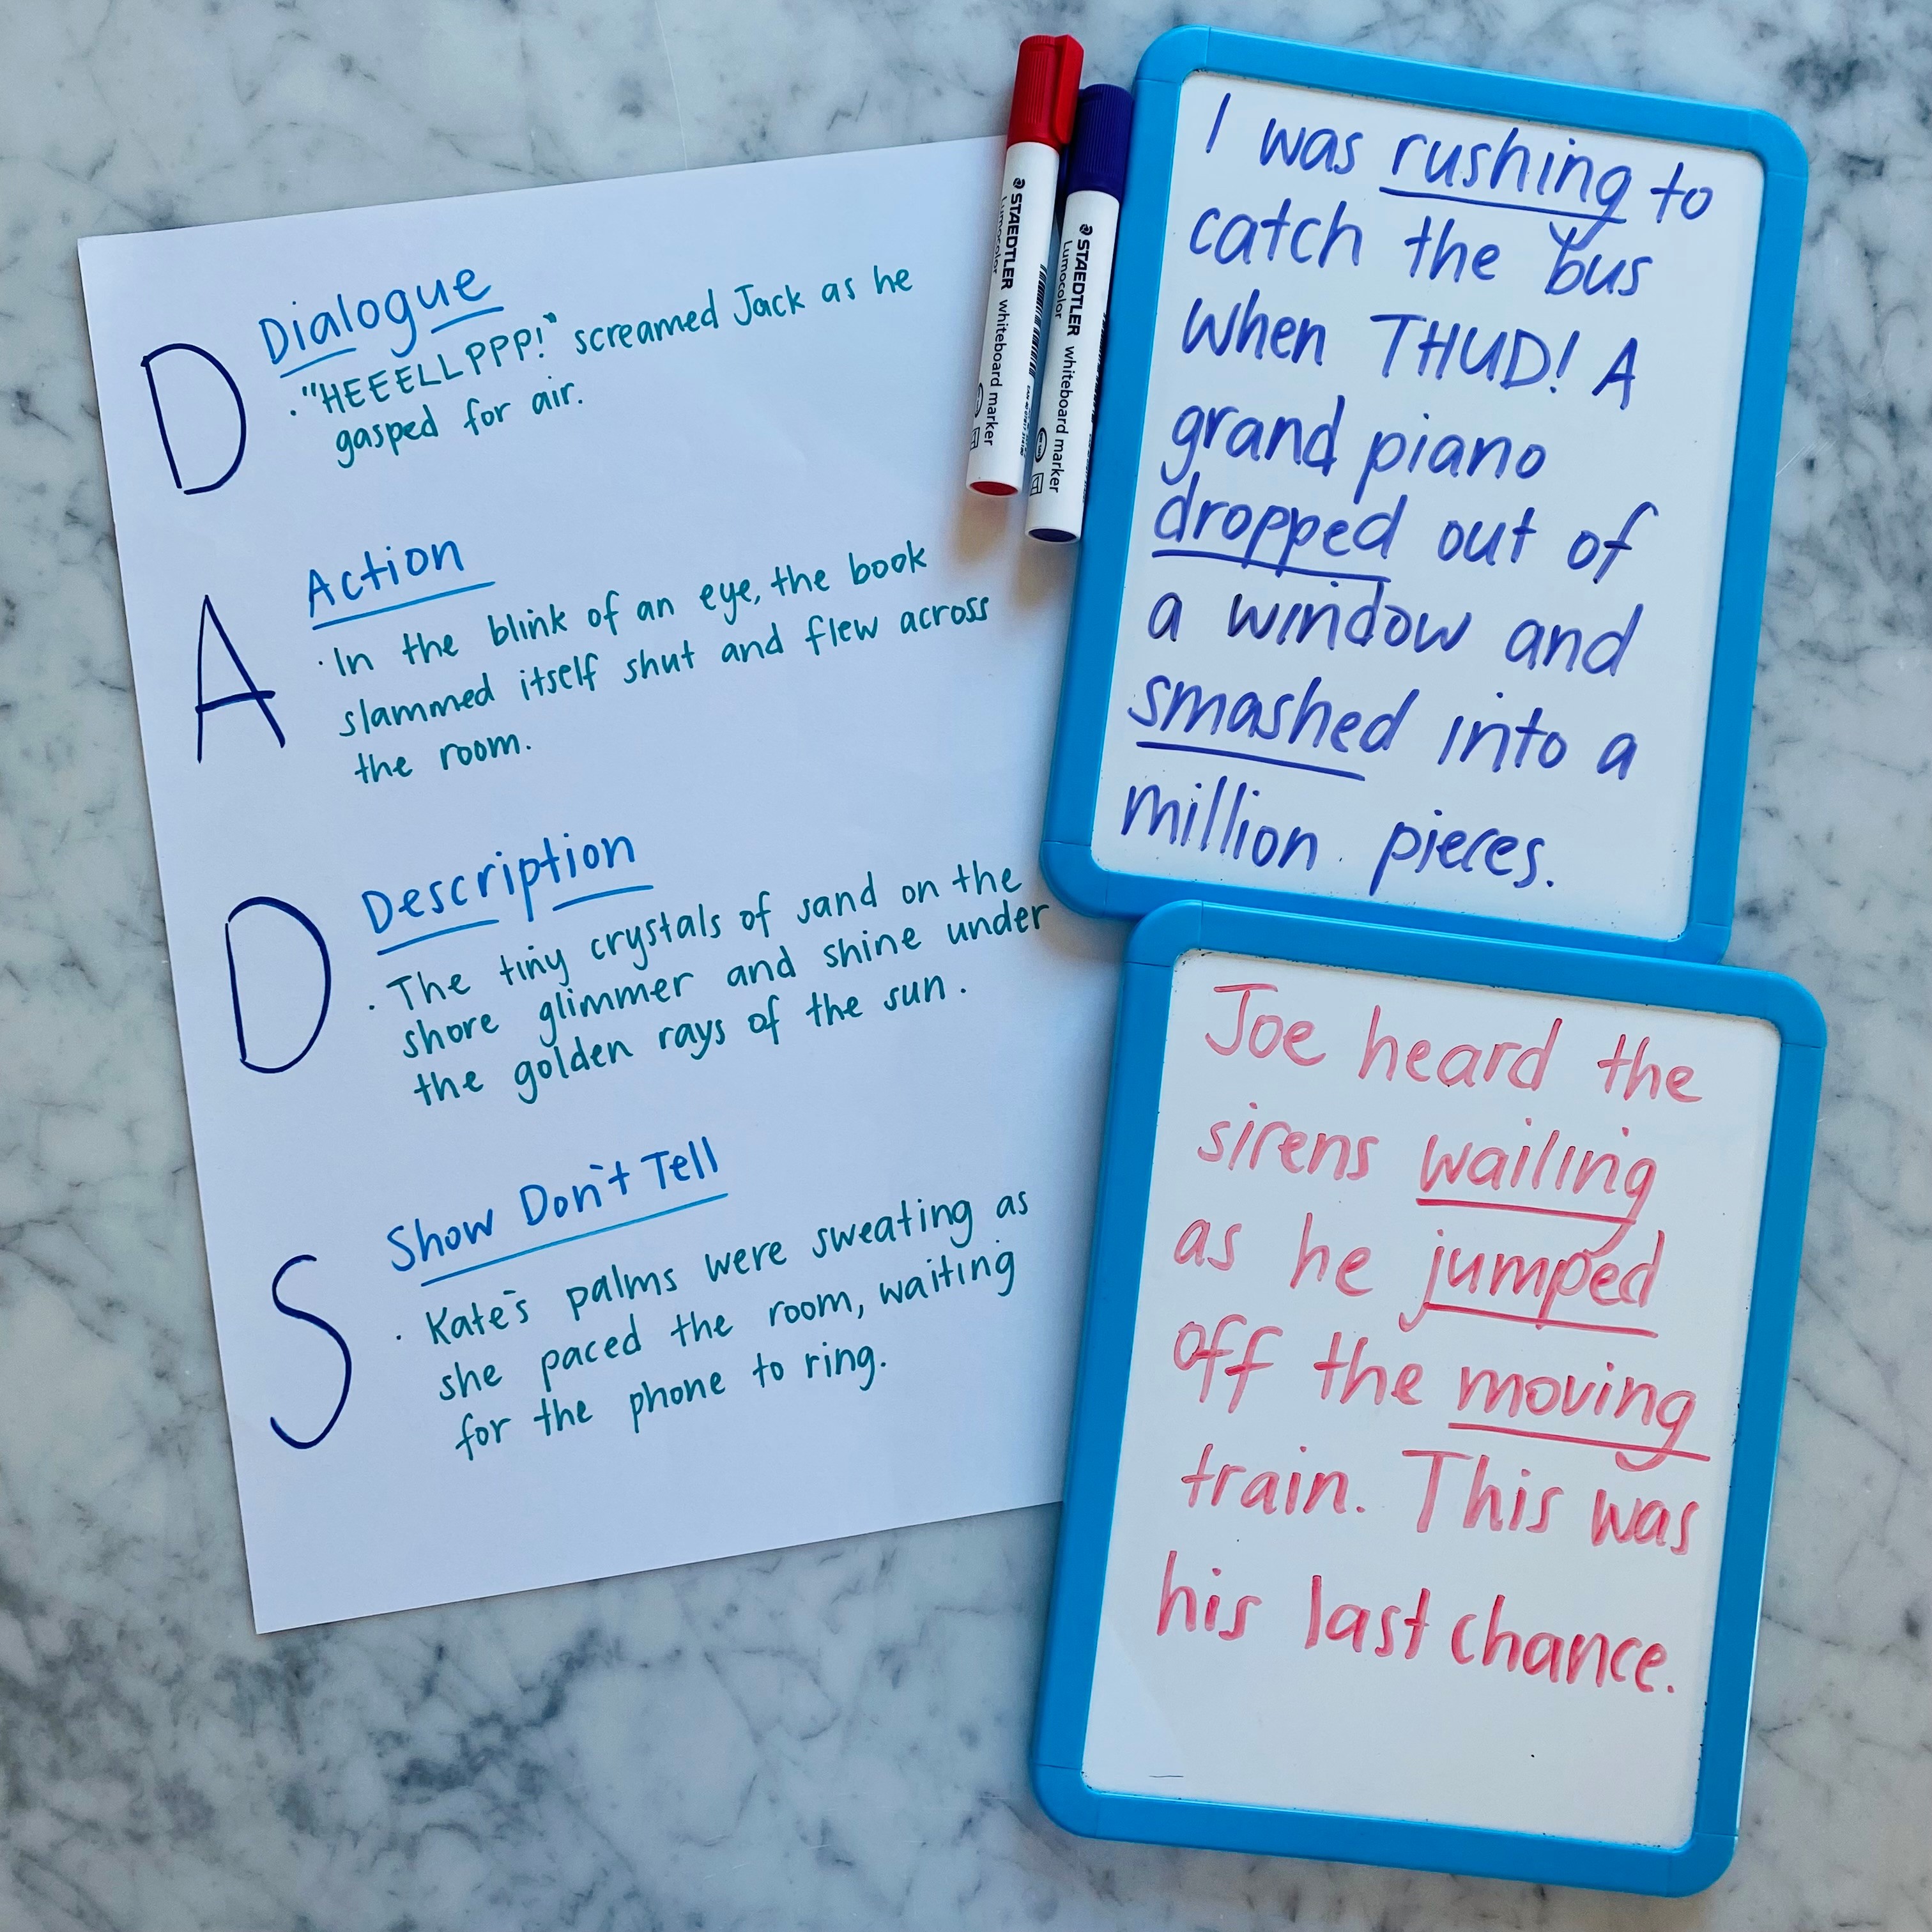 D
Dialogue
."HEEELLPPP!" screamed Jack as he
gasped for air.
A
Action
·In the blink of an eye, the book
slammed itself shut and flew across
the room.
D
Description
. The tiny crystals of sand on the
shore glimmer and shine under
the golden rays of the sun.
S
Show Don't Tell
. Kate's palms were sweating as
she paced the room, waiting
for the phone to ring.
STAEDTLER whiteboard marker
Lumocolor
STAEDTLER whiteboard marker
Lumocolor
I was rushing to
catch the bus
when THUD! A
grand piano
dropped out of
a window and
smashed into a
million pieces.
Joe heard the
sirens wailing
as he jumped
off the moving
train. This was
his last chance.